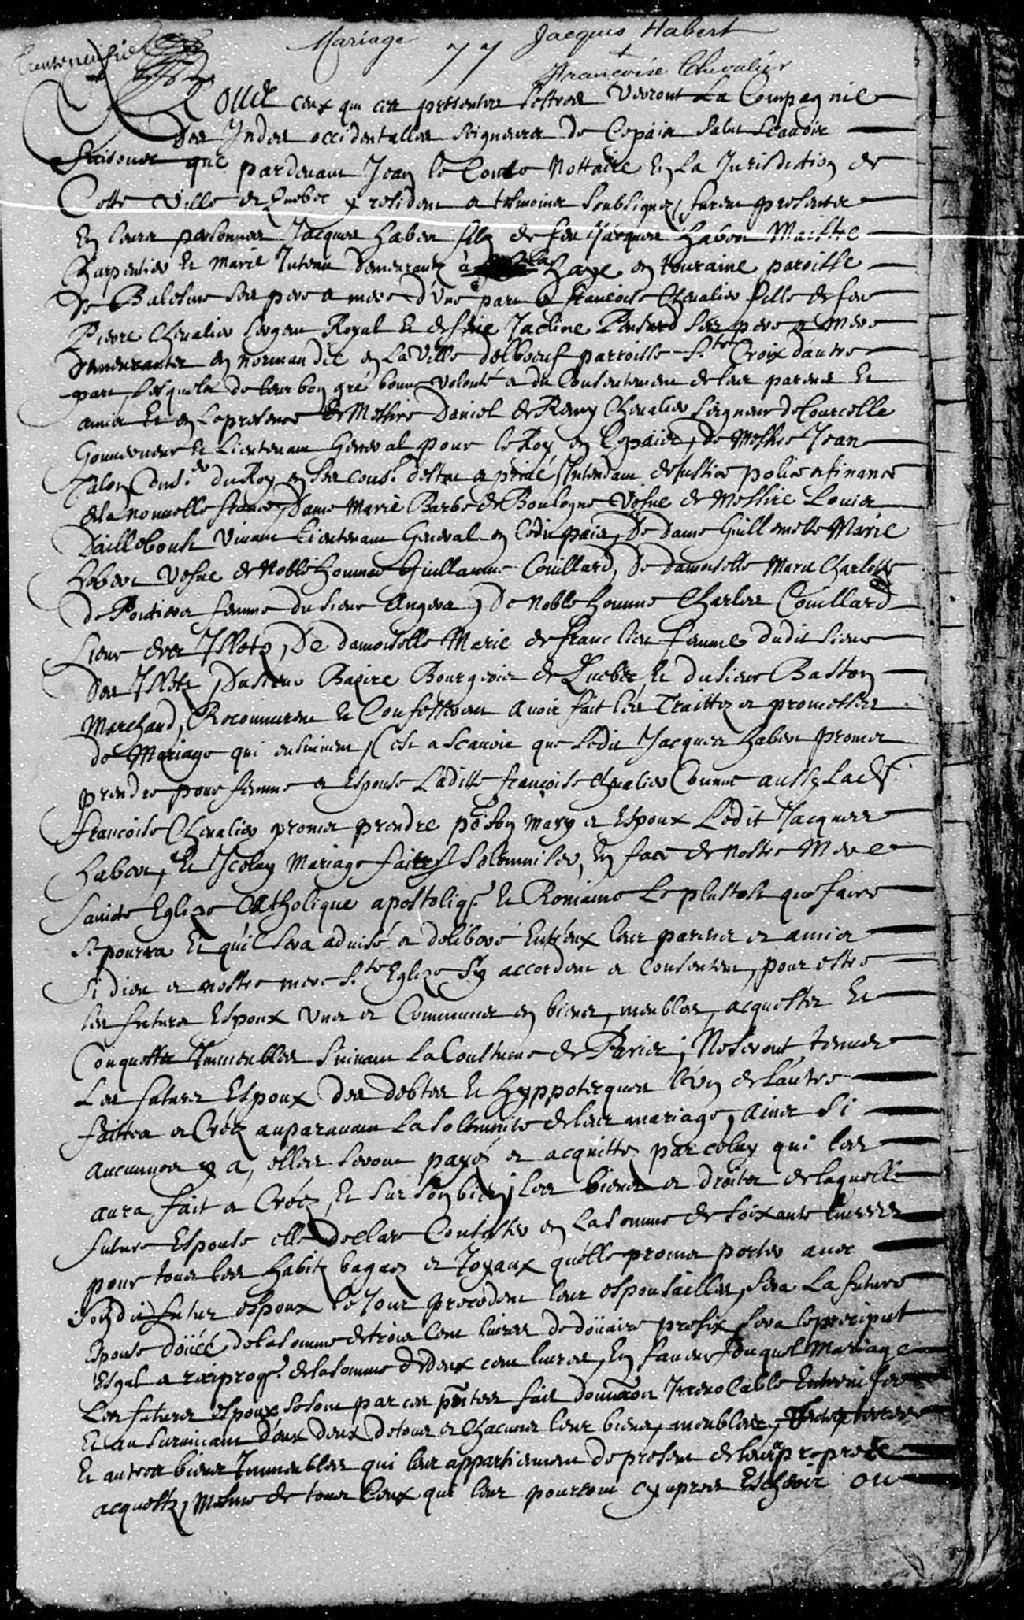 Mariage 77 Jacques Habert
Francoise Chevalier
A Tous ceux qui ces presentes lettres verront La Compagnie
Des Indes occidentalles seigneurs de ce pais salut scavoir
faisons que pardevant Jean le Conte Nottaire en La Jurisdiction de
Cette ville de Quebec y resident et tesmoins soubsignez furent presents
En leurs personnes Jacques Haber filz de feu Jacques Haber Maistre
Charpentier et Marie demeurants à La Haye en touraine paroisse
De Balesme ses pere et mere d'une part et francoise Chevalier fille de feu
Pierre Chevalier sergent Royal et de feue Jacline Pensard ses pere et mere
demeurantes en normandie en La ville delboeuf parroisse Ste Croix dautre
part Lesquels de leur bon gré bonne volonté et du Consentement de leur parens et
amis et en La presence de Messire Daniel de Remy Chevalier seigneur de Courcelle
Gouverneur et Lieutenant General pour le Roy en ce pais, de Messire Jean
Talon Consr du Roy en ses consls destat et privé Intendant de justice police et finance
de la nouvelle france, Dame Marie Barbe de Boulogne vefve de Messire Louis
Dailleboust vivant Lieutenant General en cedit pais, De dame Guillemette Marie
Hebert vefve de Noble homme Guillaume Couillard, De damoiselle Marie Charlotte
De Poitiers femme du sieur Angers, De Noble homme Charles Couillard
Sieur des Islets, De damoiselle Marie de franclieu femme dudit sieur
Des Islets, Du sieur Bazire Bourgeois de Quebec et du sieur Baston
Marchand, Reconnurent et Confesserent avoir fait les Traittez et promesses
de Mariage qui ensuivent, Cest a scavoir que Ledit Jacques Haber promet
prendre pour femme et Espouse Laditte francoise Chevalier Comme aussy Lade
francoise Chevalier promet prendre po son mary et Espoux Ledit Jacques
Haber, Et Iceluy Mariage faire solemniser, En face de Nostre Mere
Saincte Eglize Catholique apostoliq. et Romaine Le plustost que faire
se pourra et quil sera advisé et deliberé Entreux leur parens et amis
si dieu et nostre mere Ste Eglize sy accordent et Consentent, pour estre
Les futurs Espoux uns et Communs en biens, meubles, acquestez et
Conquestz Immeubles suivant La Coustume de Paris; Ne seront tenus
Les futurs Espoux des debtes et hyppotecques l'un de lautre
faittes et Créez auparavant La solemnité de leur mariage, ains si
aucunnes y a, elles seront payés et acquittez par celuy qui les
aura fait et Créez, et sur son bien; les biens et droits de laquelle
future Espouse elle Declare Consister en La somme de soixante livres
pour tous ses habits bagues et Joyaux quelle promet porter avec
sondit futur espoux le Jour precedent leur espousailles, sera La future
Espouse doüée de la somme de trois cent livres de doüaire prefix, sera le preciput
Esgal et reciproq. de la somme de deux cent livres, En faveur duquel Mariage
Les futurs espoux se sont par ces pntes fait donnaon Irrevocable Entrevifs
Et au survivant d'eux deux de tous et Chacuns leur biens, meubles,
Et autres biens Immeubles qui leur appartiennent de present de leur propre et
acquestz, Mesme de tous Ceux qui leur pourront cy apres Escheoir ou